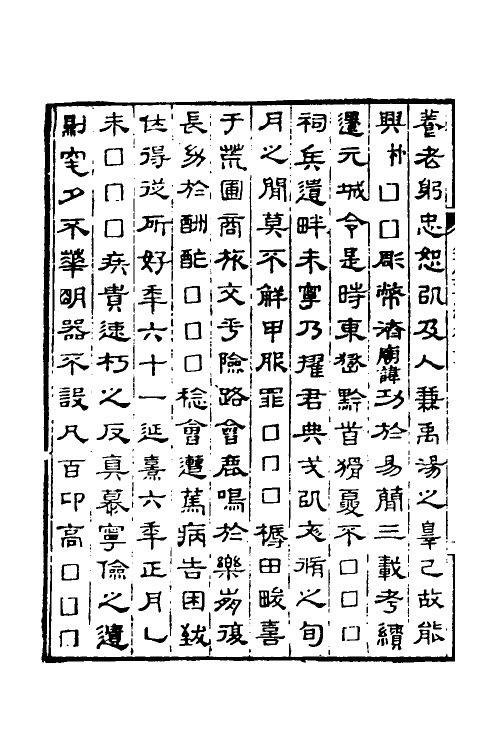 養老躬忠恕㠯及人兼禹湯之辠己故能
興朴□□彫幣濟廟諱功於易簡三載考績
遷元城令是時東嶽黔首猾夏不□□□
祠兵遺畔未寧乃擢君典戎㠯文脩之旬
月之閒莫不解甲服罪□□□穮田畯喜
于荒圃商旅交乎險路會鹿鳴於樂崩復
長幼於酬酢□□□稔會遭篤病告困致
仕得從所好年六十一延熹六年正月乚
未□□□疾貴速朽之反真慕寧儉之遺
則窆夕不華明器不設凡百卬高□□□